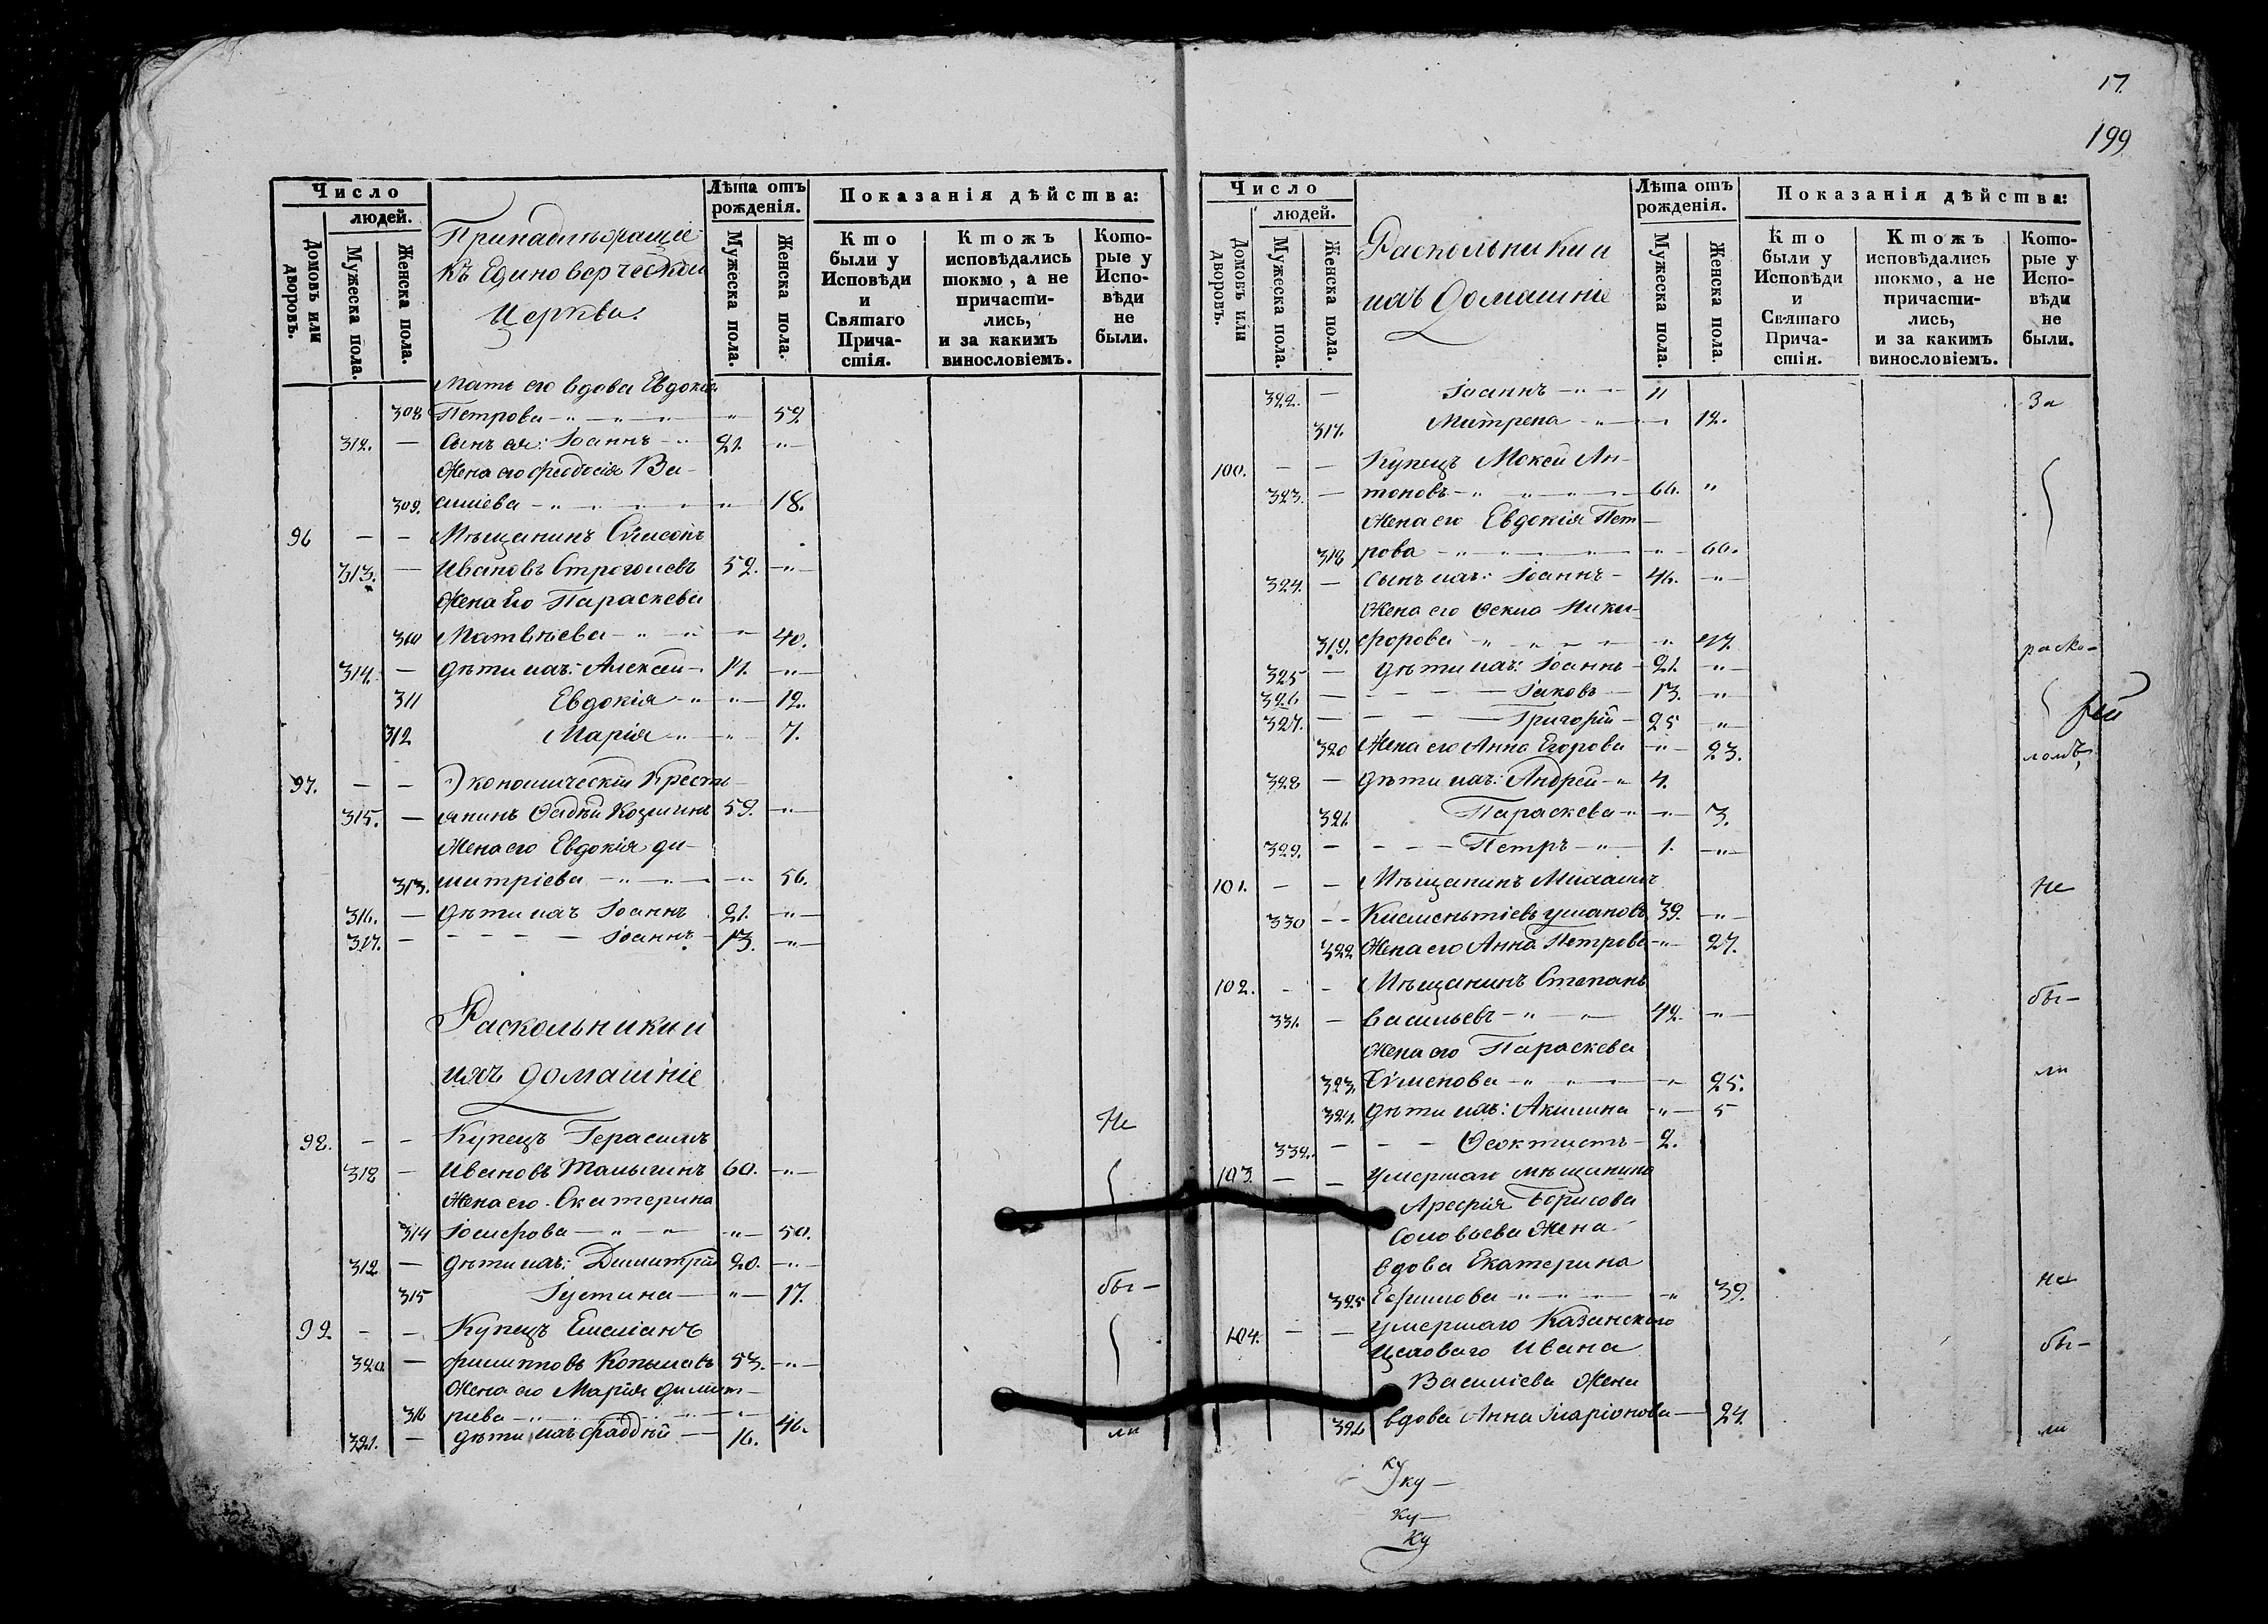 Число
людей.
Домовъ или дворовъ.
Мужеска пола.
Женска пола.
Принадлежащіе
къ Единоверческой
Церкви.
Лѣта отъ рожденія.
Мужеска пола.
Женска пола.
Показанія дѣйства:
Кто были у Исповѣди и Святаго Прича-стія.
Ктожъ исповѣдались токмо, а не причасти-лись, и за какимъ винословіемъ.
Кото-рые у Испо-вѣди не были.
Мать его вдова Евдокія
308 Петрова - " - " - 59.
312. — Сынъ ея: Іоаннъ - " 21. - " -
Жена его Феодосія Ва-
309. силіева - " - " - 18.
96 - - Мѣщанинъ Сѵмеонъ
313. — Ивановъ Строголевъ 52. - " -
Жена его Параскева
310 Матвѣева - " - " - 40.
314. — Дѣти ихъ: Алексѣй - 14. - " -
311 Евдокія - " - " - 12.
312 Марія - " - " - 7.
97. - - Экономическій Кресть-
315. — янинъ Фадѣй Козминъ 59. - " -
Жена его Евдокія Ди-
313. митріева - " - " - 56.
316. — Дѣти ихъ Іоаннъ 21. - " -
317. - - - - - Іоаннъ - 13. - " -
Раскольники и
ихъ домашніе
98. - - Купецъ Герасимъ Не
318 — Ивановъ Малыгинъ 60. - " -
Жена его Екатерина
314 Іосифова - " - " - 50.
319 — Дѣти ихъ: Димитрій 20. - " -
315 Іустина - " - 17. бы-
99. - - Купецъ Емеліанъ
320 — Филипповъ Копыловъ 53. - " -
Жена его Марія Димит-
316 ріева - " - " - 46.
321. — Дѣти ихъ Фаддѣй - 16. ли
17.
199
Число
людей.
Домовъ или дворовъ.
Мужеска пола.
Женска пола.
Раскольники и
ихъ домашніе
Лѣта отъ рожденія.
Мужеска пола.
Женска пола.
Показанія дѣйства:
Кто были у Исповѣди и Святаго Прича-стія.
Ктожъ исповѣдались токмо, а не причасти-лись, и за какимъ винословіемъ.
Кото-рые у Испо-вѣди не были.
322. — Іоаннъ - " - 11 За
317. Матрена - " - 12.
100. - - Купецъ Мокей Ан-
323. — тоновъ - " - " - 66. "
Жена его Евдокія Пет-
318 рова - " - " - 60.
324. — Сынъ ихъ: Іоаннъ - 46. - " -
Жена его Фекла Ники-
319. форова - " - " - 47. раско-
325 — Дѣти ихъ: Іоаннъ - 21. - " -
326 — - - - Іаковъ - 13. - " -
327. — - - - Григорій - 25 - " -
320 Жена его Анна Егорова - " - 23. ломъ,
328 — Дѣти ихъ: Андрей - " 4.
321. Параскева - " - 3.
329. - - - - Петръ - " - 1. - " -
101. - - Мѣщанинъ Михаилъ Не
330 - - Климентіевъ Ушаковъ 39. - " -
322 Жена его Анна Петрова - " - 27.
102. - - Мѣщанинъ Степанъ
331. — Васильевъ - " - 42. - " - бы-
Жена его Параскева
323. Сѵменова - " - " - 25. ли
324. Дѣти ихъ: Акилина - " - 5
332. — - - Феоктистъ - 2.
103. - - Умершаго мѣщанина
Арефія Борисова
Соловьева Жена
вдова Екатерина
325 Ефимова - " - " - 39. не
104. - - Умершаго Казанскаго
Цеховаго Ивана бы-
Василіева Жена
326 вдова Анна Иларіонова - 24. ли
ку
ку -
ку -
ку